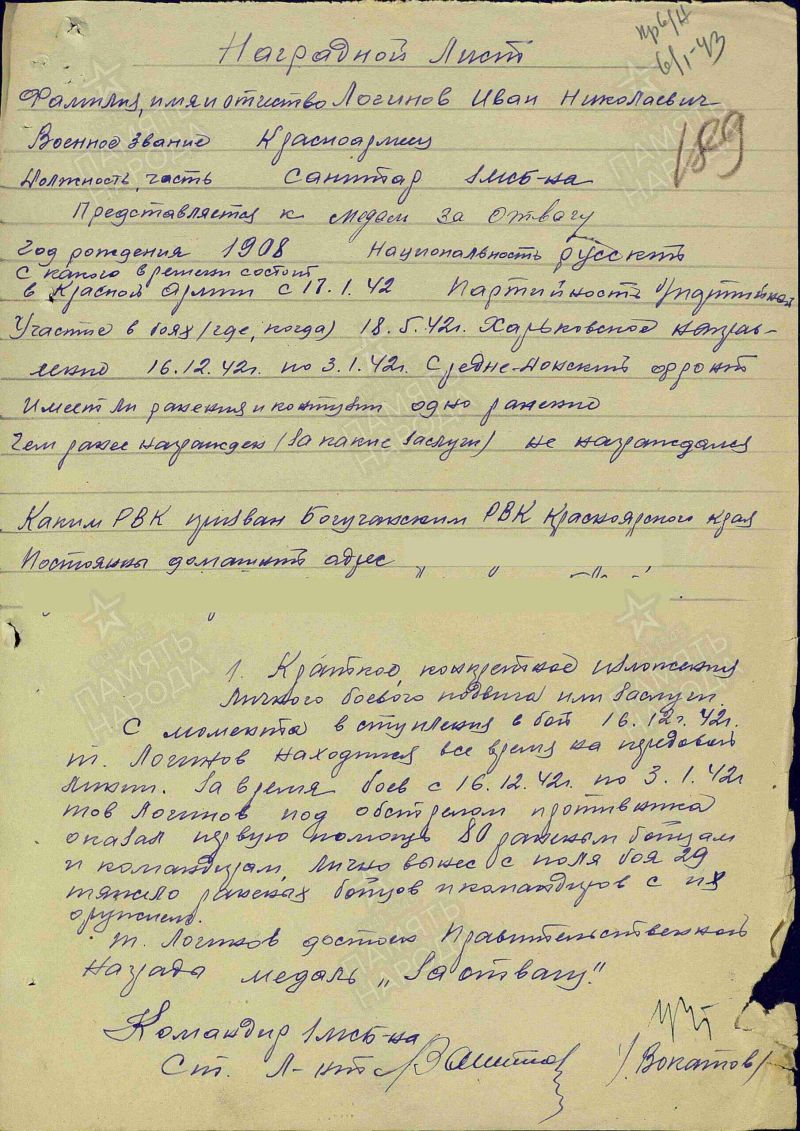 пр 6/н
6/I-43
Наградной Лист
189
Фамилия, имя и отчество Логинов Иван Николаевич
Военное звание Красноармеец
Должность, часть санитар 1МСБ-на
Представляется к медали за отвагу
Год рождения 1908 национальность русский
с какого времени состоит
в Красной Армии с 17.1.42 Партийность
Участие в боях (где, когда) 18.5.42г. Харьковское направ-
ление 16.12.42г. по 3.1.42г. Средне-Донской фронт
Имеет ли ранения и контузии одно ранение
Чем ранее награжден (за какие заслуги) не награждался
Каким РВК призван Богучанским РВК Красноярского края
Постоянный домашний адрес
1. Краткое, конкретное изложение
личного боевого подвига или заслуги.
С момента вступления в бой 16.12г.42г.
т. Логинов находился все время на передовой
линии. За время боев с 16.12.42г. по 3.1.42г
тов Логинов под обстрелом противника
оказал первую помощь 80 раненым бойцам
и командирам, лично вынес с поля боя 29
тяжело раненых бойцов и командиров с их
оружием.
т. Логинов достоин Правительственной
Награда медаль "За отвагу".
Командир 1МСБ-на
Ст. Л-нт /Вокатов/
ПАМЯТЬ НАРОДА
ПАМЯТЬ НАРОДА
ПАМЯТЬ НАРОДА
ПАМЯТЬ НАРОДА
ПАМЯТЬ НАРОДА
ПАМЯТЬ НАРОДА